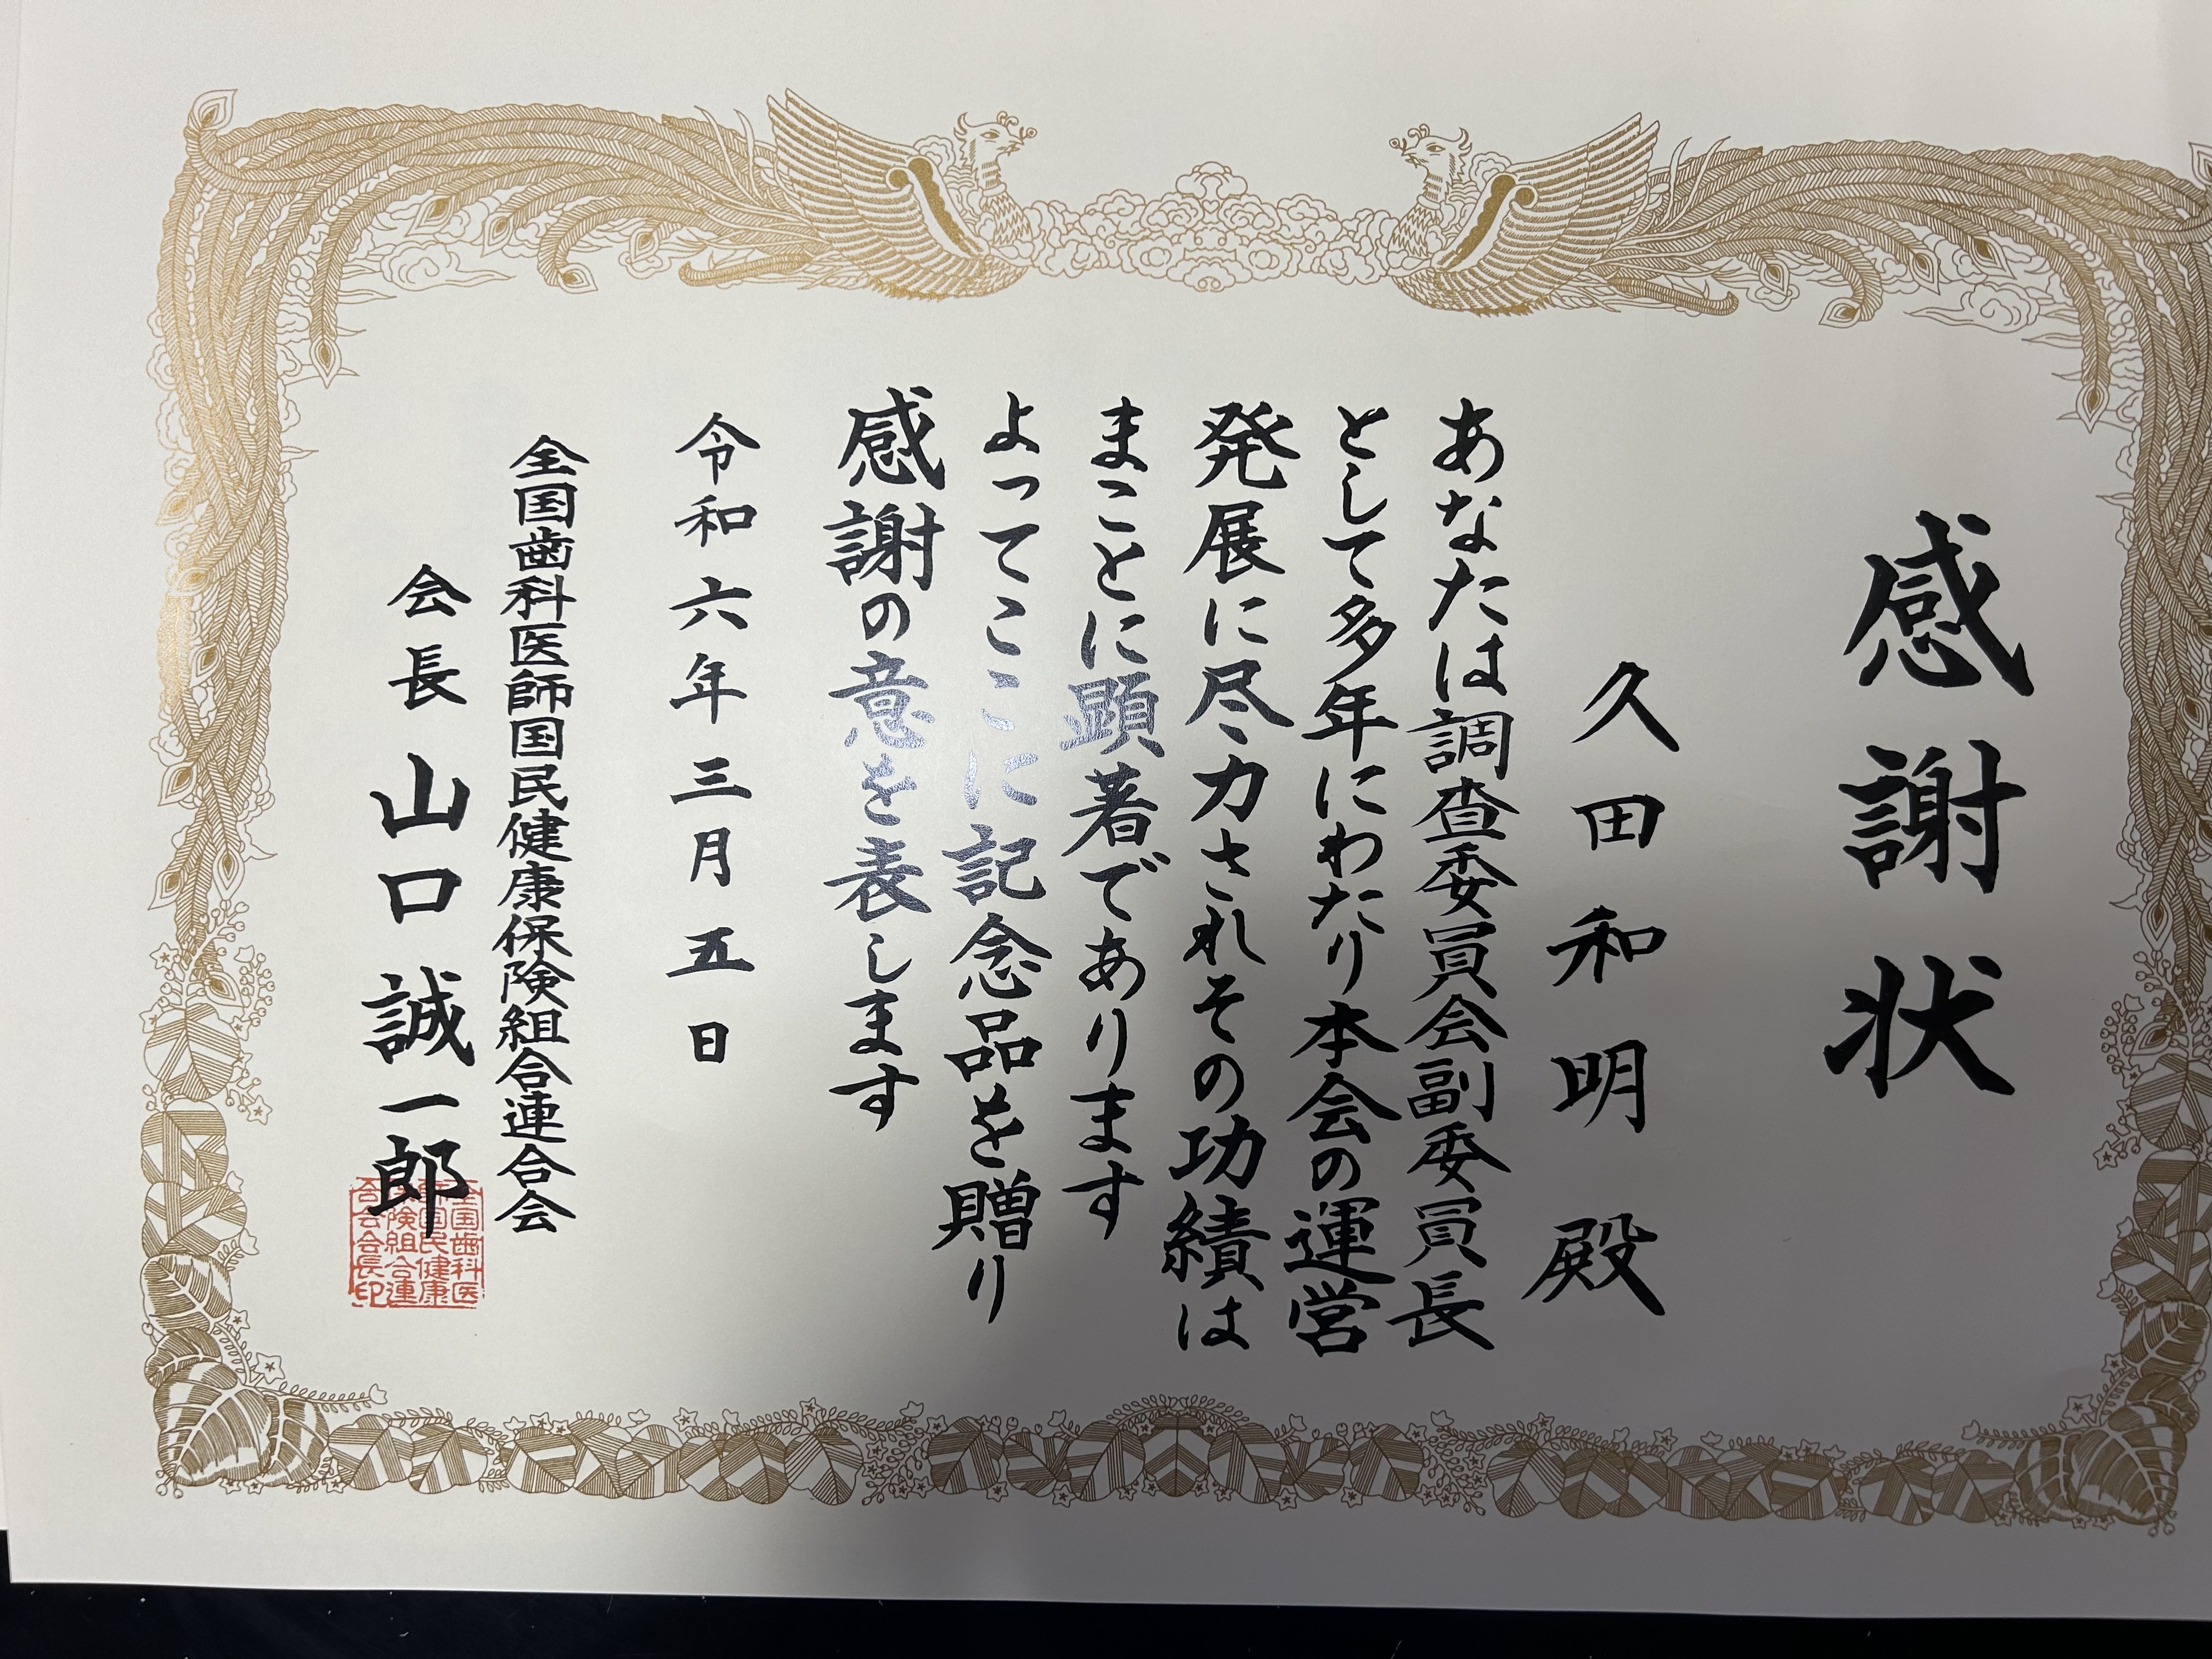 感謝状
久田和明殿
あなたは調査委員会副委員長
として多年にわたり本会の運営
発展に尽力されその功績は
まことに顕著であります
よってここに記念品を贈り
感謝の意を表します
令和六年三月五日
全国歯科医師国民健康保険組合連合会
会長 山口誠一郎